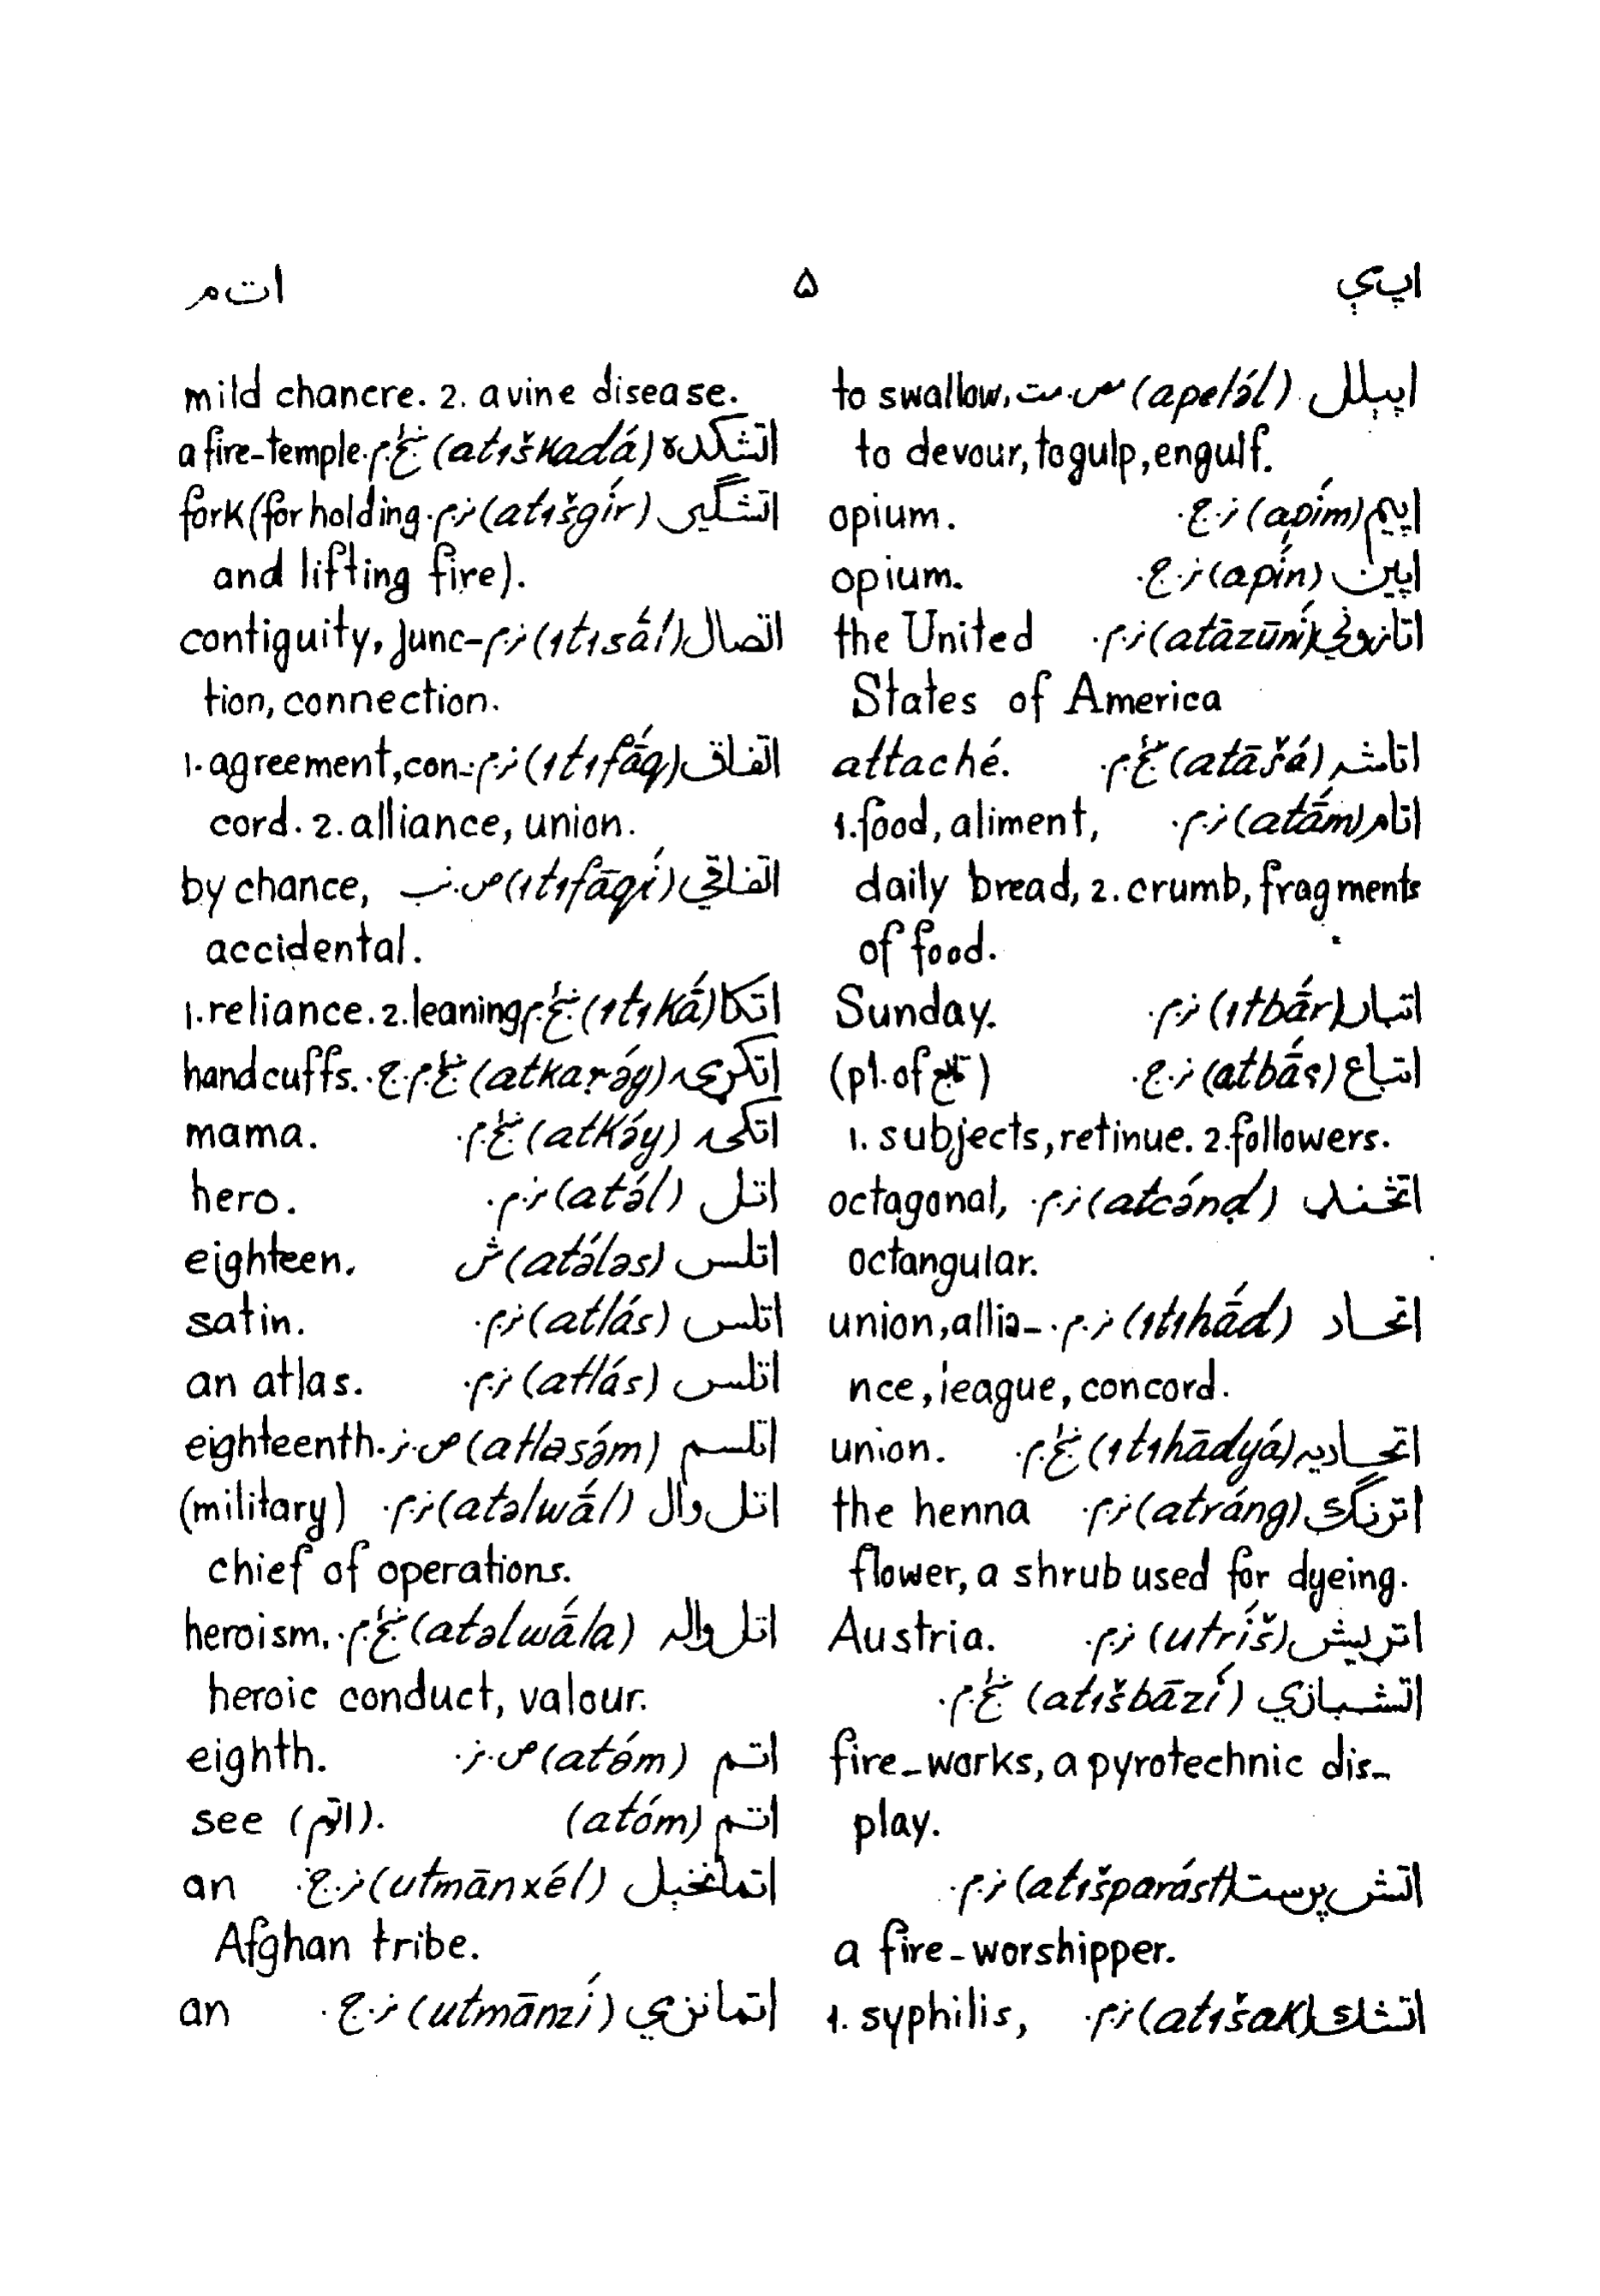 اپ‌ې ۵ ات‌م
اپېلل (apelə́l) مص.مت. to swallow,
to devour, to gulp, engulf.
اپیم (apím) نر.ج. opium.
اپین (apín) نر.ج. opium.
اتازوني (atāzūní) نر.م. the United
States of America
اتاشه (atāšá) ښځ.م. attaché.
اتام (atā́m) نر.م. 1. food, aliment,
daily bread, 2. crumb, fragments
of food.
اتبار (ıtbā́r) نر.م. Sunday.
اتباع (atbā́ʕ) نر.ج. (pl. of تابع)
1. subjects, retinue. 2. followers.
اتڅنډ (atcánḍ) نر.م. octagonal,
octangular.
اتحاد (ıtıhā́d) نر.م. union, allia-
nce, league, concord.
اتحادیه (ıtıhādyá) ښځ.م. union.
اترنګ (atráng) نر.م. the henna
flower, a shrub used for dyeing.
اتریش (utríš) نر.م. Austria.
اتشبازي (atıšbāzí) ښځ.م.
fire-works, a pyrotechnic dis-
play.
اتش‌پرست (atıšparást) نر.م.
a fire-worshipper.
اتشک (atıšak) نر.م. 1. syphilis,
mild chancre. 2. a vine disease.
اتشکده (atıškadá) ښځ.م. a fire-temple.
اتشګیر (atıšgír) نر.م. fork (for holding
and lifting fire).
اتصال (ıtısā́l) نر.م. contiguity, junc-
tion, connection.
اتفاق (ıtıfā́q) نر.م. 1. agreement, con-
cord. 2. alliance, union.
اتفاقي (ıtıfāqí) ص.نب. by chance,
accidental.
اتکا (ıtıkā́) ښځ.م. 1. reliance. 2. leaning
اتکړۍ (atkaṛə́y) ښځ.م.ج. handcuffs.
اتکۍ (atkə́y) ښځ.م. mama.
اتل (atə́l) نر.م. hero.
اتلس (atə́ləs) ش eighteen.
اتلس (atlás) نر.م. satin.
اتلس (atlás) نر.م. an atlas.
اتلسم (atləsə́m) ص.نر. eighteenth.
اتل‌وال (atəlwā́l) نر.م. (military)
chief of operations.
اتل‌واله (atəlwā́la) ښځ.م. heroism,
heroic conduct, valour.
اتم (atə́m) ص.نر. eighth.
اتم (atóm) see (اټوم).
اتمانخېل (utmānxél) نر.ج. an
Afghan tribe.
اتمانزي (utmānzí) نر.ج. an